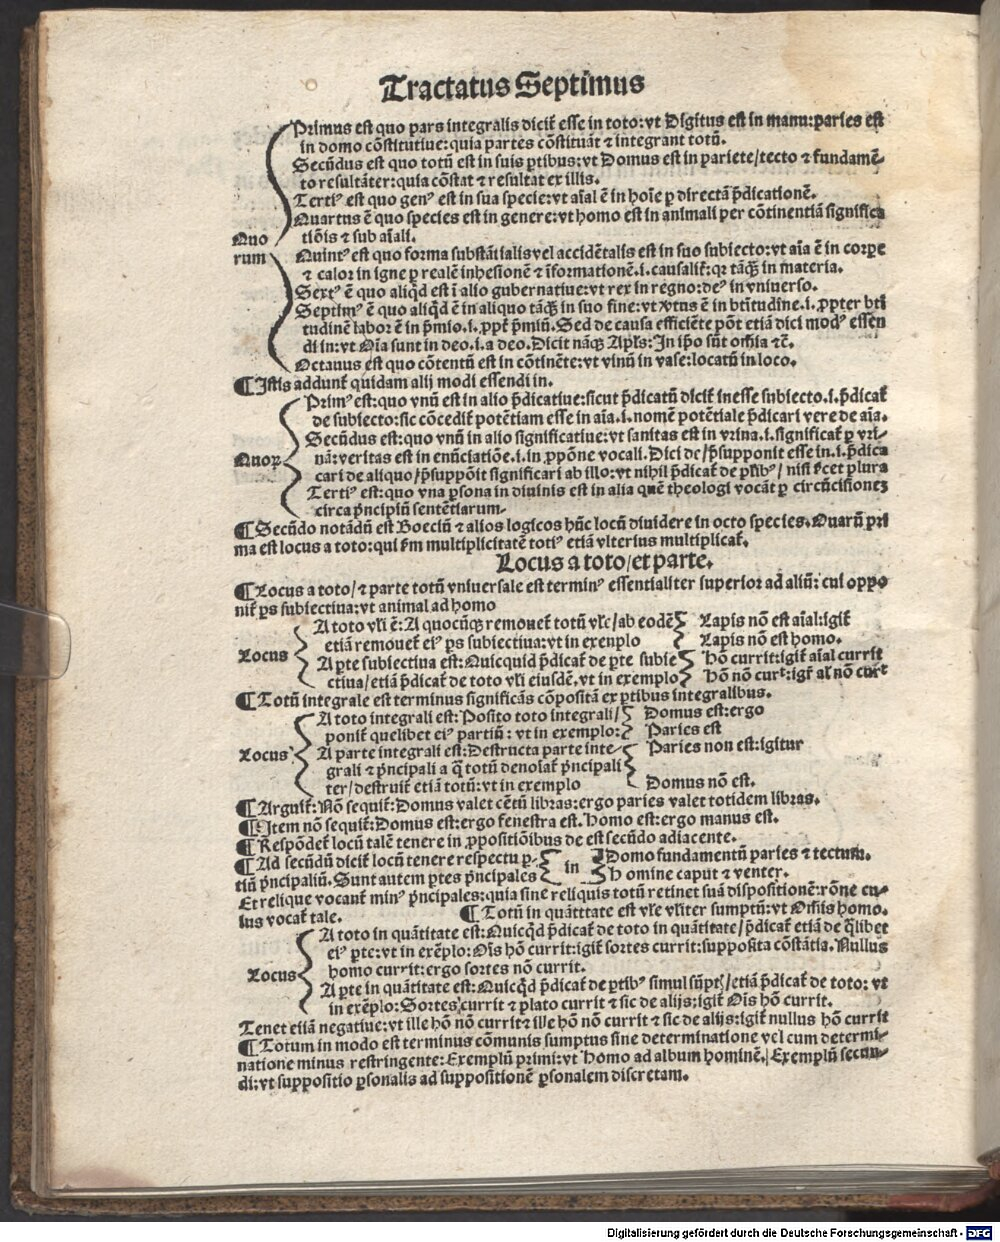 Tractatus Septimus
Primus est quo pars integralis dicit̃ esse in toto: vt Digitus est in manu: paries est
in domo cõstitutiue: quia partes cõstituũt ⁊ integrant totũ.
Secũdus est quo totũ est in suis ꝑtibus: vt Domus est in pariete/tecto ⁊ fundamẽ-
to resultãter: quia cõstat ⁊ resultat ex illis.
Tertiꝰ est quo genꝰ est in sua specie: vt aĩal ẽ in hoĩe ꝑ directã p̃dicationẽ.
Quartus ẽ quo species est in genere: vt homo est in animali per cõtinentiã significa
Quo
rum
tiõis ⁊ sub aĩali.
Quintꝰ est quo forma substãtialis vel accidẽtalis est in suo subiecto: vt aĩa ẽ in corꝑe
⁊ calor in igne ꝑ realẽ inhesionẽ ⁊ ĩformationẽ.i. causalit̃: qꝛ tãq̃ in materia.
Sextꝰ ẽ quo aliq̇d est ĩ alio gubernatiue: vt rex in regno: deꝰ in vniuerso.
Septimꝰ ẽ quo aliq̇d ẽ in aliquo tãq̃ in suo fine: vt v̇tus ẽ in btĩtudĩne.i. ꝓpter bti
tudinẽ labor ẽ in p̃mio.i. ꝓpt̃ p̃miũ. Sed de causa efficiẽte põt etiã dici modꝰ essen
di in: vt Oĩa sunt in deo.i. a deo. Dicit nãq̃ Apl̃s: In ip̃o sũt om̃ia ⁊c̃.
Octauus est quo cõtentũ est in cõtinẽte: vt vinũ in vase: locatũ in loco.
¶ Istis addunt̃ quidam alij modi essendi in.
Primꝰ est: quo vnũ est in alio p̃dicatiue: sicut p̃dicatũ dicit̃ inesse subiecto.i. p̃dicat̃
de subiecto: sic cõcedit̃ potẽtiam esse in aĩa.i. nomẽ potẽtiale p̃dicari vere de aĩa.
Secũdus est: quo vnũ in alio significatiue: vt sanitas est in vrina.i. significat̃ ꝑ vri-
Quoꝝ
nã: veritas est in enũciatiõe.i. in ꝓpõne vocali. Dici de/p̃supponit esse in.i. p̃dica
cari de aliquo/p̃suppõit significari ab illo: vt nihil p̃dicat̃ de ꝑtibꝰ/ nisi s̃cet plura
Tertiꝰ est: quo vna ꝑsona in diuinis est in alia quẽ theologi vocãt ꝑ circũcisiones
circa p̃ncipiũ sentẽtiarum.
¶ Secũdo notãdũ est Boeciũ ⁊ alios logicos hũc locũ diuidere in octo species. Quarũ pri
ma est locus a toto: qui s̃m multiplicitatẽ totiꝰ etiã vlterius multiplicat̃.
Locus a toto/et parte.
¶ Locus a toto/⁊ parte totũ vniuersale est terminꝰ essentialiter superior ad aliũ: cui oppo
nit̃ ꝑs subiectiua: vt animal ad homo
A toto vl̃i ẽ: A quocũq̃ remouet̃ totũ vl̃e/ab eodẽ
etiã remouet̃ eiꝰ ꝑs subiectiua: vt in exenplo
Lapis nõ est aĩal: igit̃
Lapis nõ est homo.
Locus
A ꝑte subiectiua est: Quicquid p̃dicat̃ de ꝑte subie
ctiua/etiã p̃dicat̃ de toto vl̃i eiusdẽ. vt in exemplo
hõ currit: igit̃ aĩal currit
hõ nõ currt: igr̃ al̃ nõ currt
¶ Totũ integrale est terminus significãs cõpositã ex ꝑtibus integralibus.
A toto integrali est: Posito toto integrali/
ponit̃ quelibet eiꝰ partiũ: vt in exemplo:
Domus est: ergo
Paries est
Locus
A parte integrali est: Destructa parte inte-
grali ⁊ p̃ncipali a q̃ totũ denoĩat̃ p̃ncipali
ter/destruit̃ etiã totũ: vt in exemplo
Paries non est: igitur
Domus nõ est.
¶ Arguit̃: Nõ sequit̃: Domus valet cẽtũ libras: ergo paries valet totidem libras.
¶ Item nõ sequit̃: Domus est: ergo fenestra est. Homo est: ergo manus est.
¶ Respõdet̃ locũ talẽ tenere in ꝓpositiõibus de est secũdo adiacente.
¶ Ad secũdũ dicit̃ locũ tenere respectu ꝑ-
tiũ p̃ncipaliũ. Sunt autem ꝑtes p̃ncipales
in
Domo fundamentũ paries ⁊ tectum.
Homine caput ⁊ venter.
Et relique vocant̃ minꝰ p̃ncipales: quia sine reliquis totũ retinet suã dispositionẽ: rõne cu-
ius vocat̃ tale.
¶ Totũ in quãtttate est vl̃e vl̃iter sumptũ: vt Om̃is homo.
A toto in quãtitate est: Quicq̇d p̃dicat̃ de toto in quãtitate/p̃dicat̃ etiã de q̃libet
eiꝰ ꝑte: vt in exẽplo: Oĩs hõ currit: igit̃ sortes currit: supposita cõstãtia. Nullus
homo currit: ergo sortes nõ currit.
Locus
A ꝑte in quãtitate est: Quicq̇d p̃dicat̃ de ꝑtibꝰ simul sũptꝭ/etiã p̃dicat̃ de toto: vt
in exẽplo: Sortes currit ⁊ plato currit ⁊ sic de alijs: igit̃ Oĩs hõ currit.
Tenet etiã negatiue: vt ille hõ nõ currit ⁊ ille hõ nõ currit ⁊ sic de alijs: igit̃ nullus hõ currit
¶ Totum in modo est terminus cõmunis sumptus sine determinatione vel cum determi-
natione minus restringente: Exemplũ primi: vt Homo ad album hominẽ. Exemplũ secun-
di: vt suppositio ꝑsonalis ad suppositionẽ ꝑsonalem discretam.
Digitalisierung gefördert durch die Deutsche Forschungsgemeinschaft - DFG